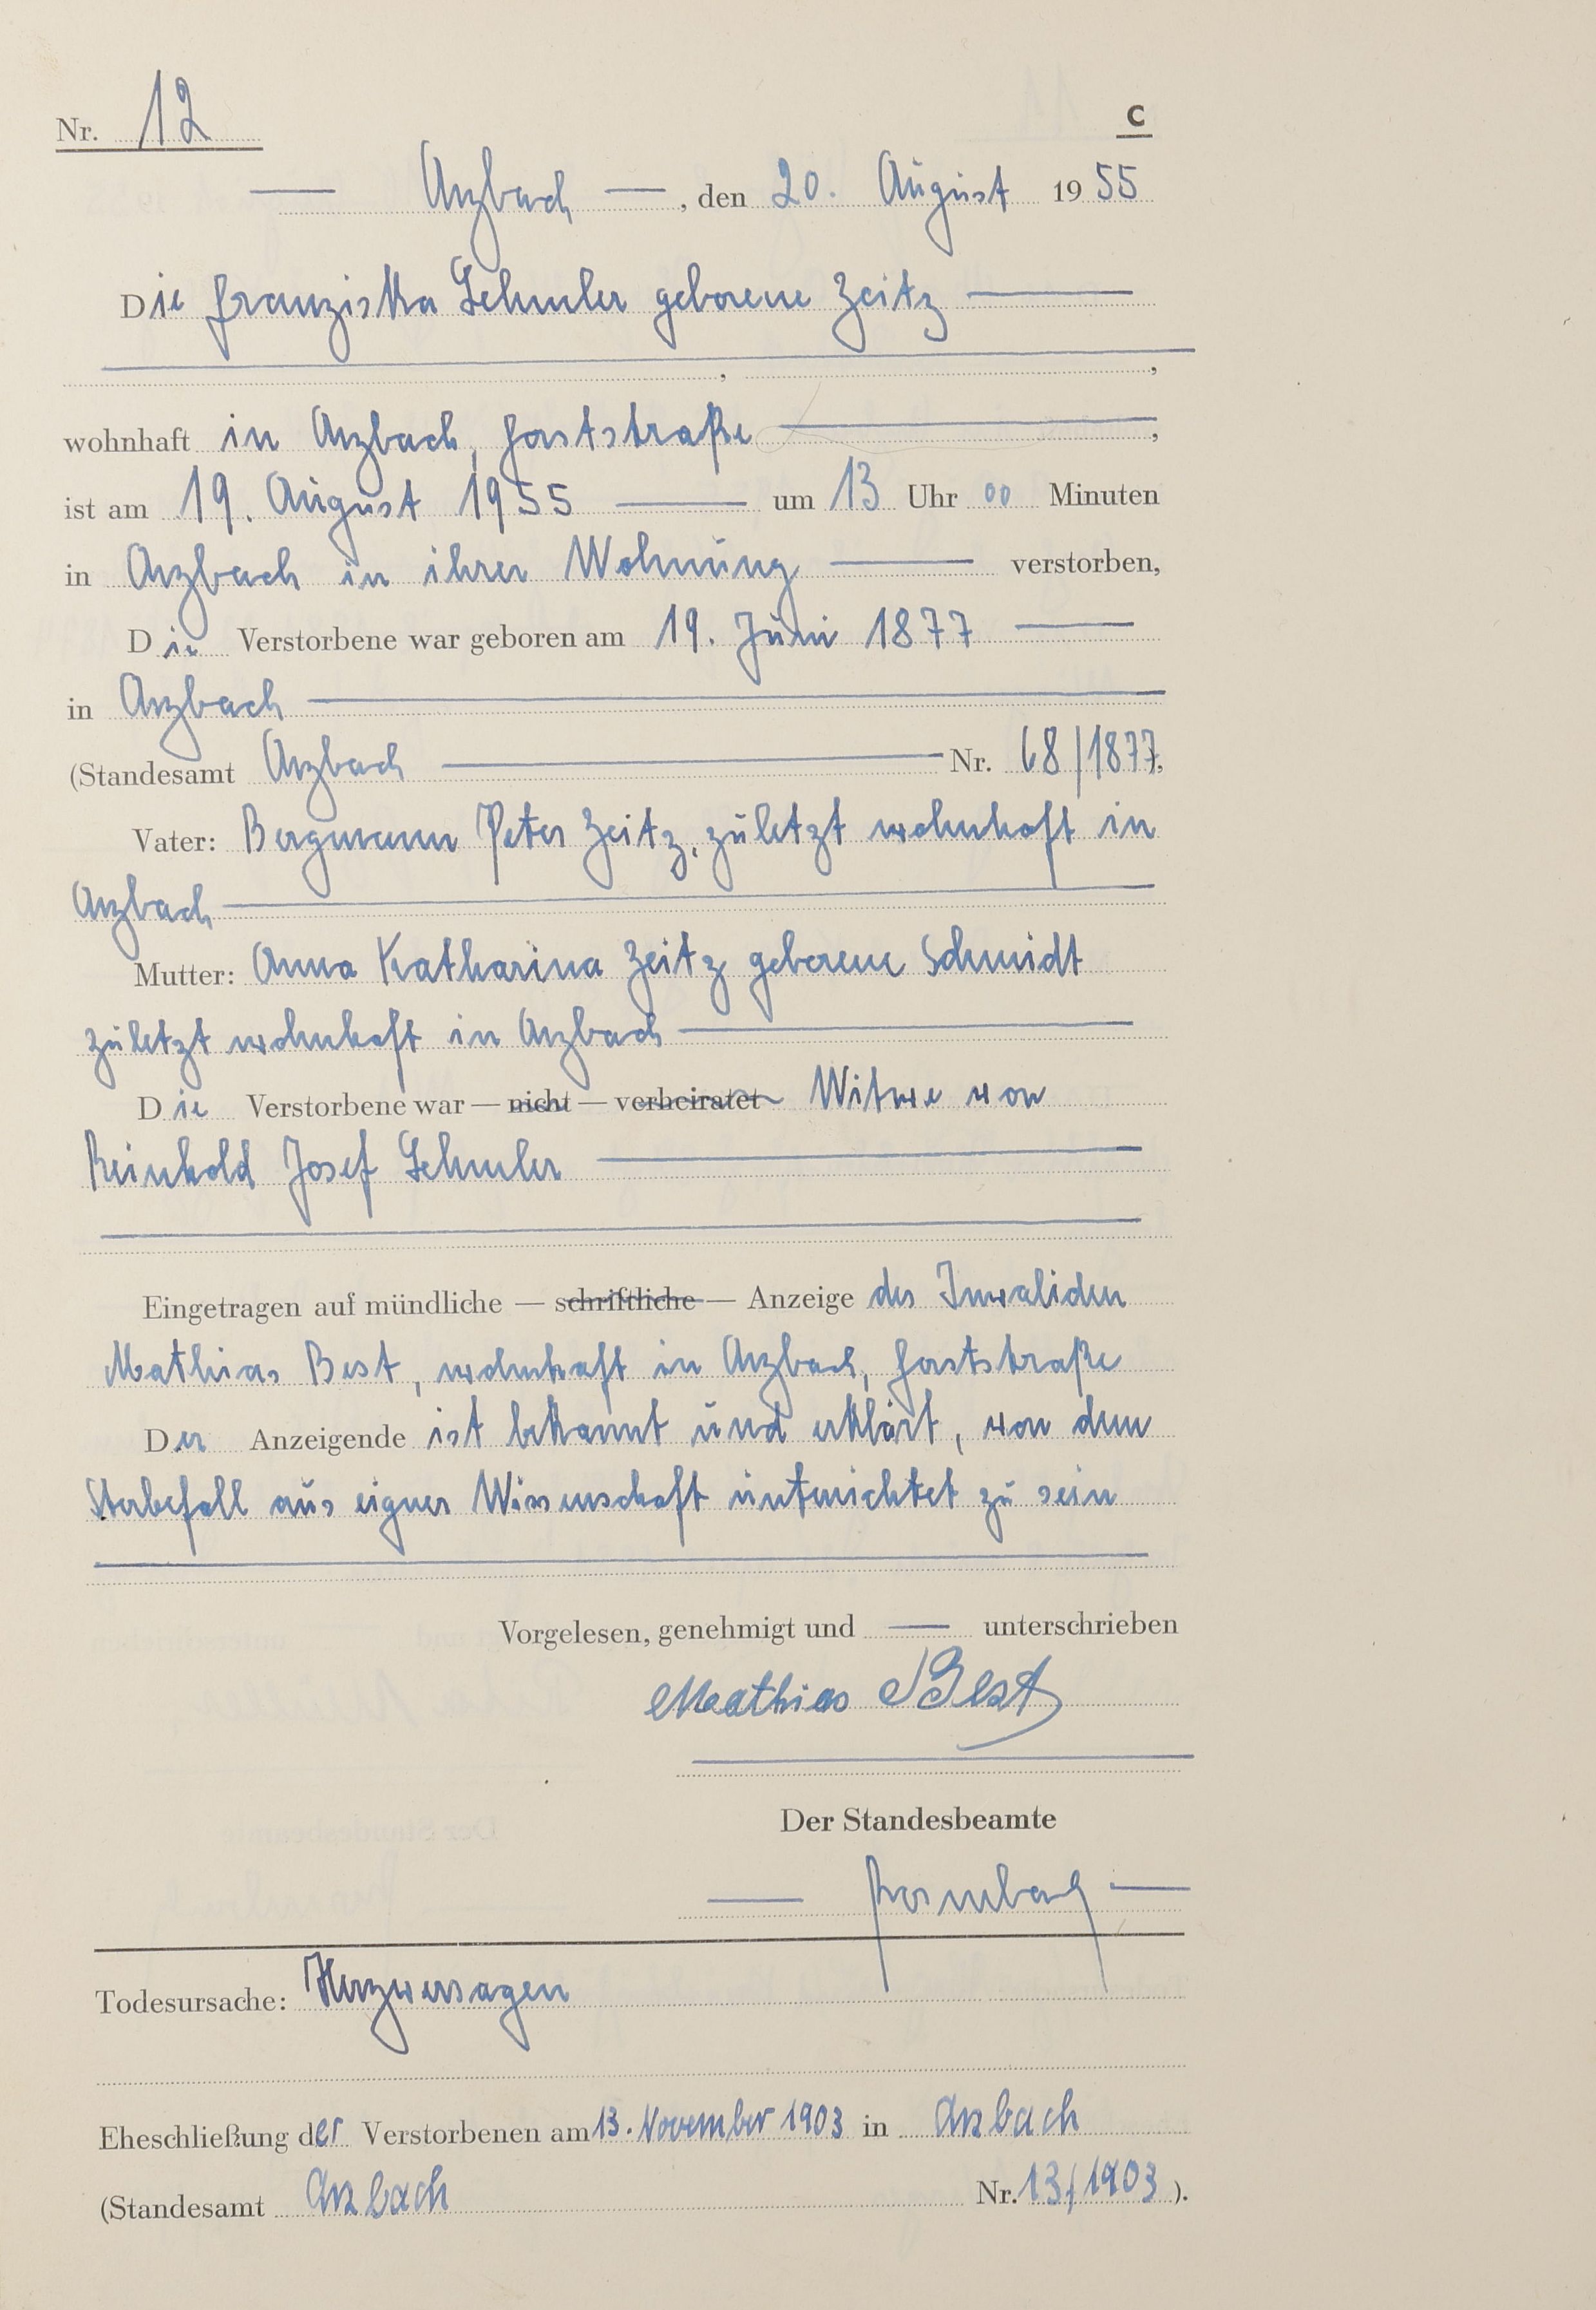 Nr. 12
C
— Arzbach —, den 20. August 1955
Die Franziska Lehmler geborene Zeitz —
, ,
wohnhaft in Arzbach, Forststraße —,
ist am 19. August 1955 — um 13 Uhr 00 Minuten
in Arzbach in ihrer Wohnung — verstorben,
Die Verstorbene war geboren am 19. Juni 1877 —
in Arzbach —
(Standesamt Arzbach — Nr. 68/1877,
Vater: Bergmann Peter Zeitz, zuletzt wohnhaft in
Arzbach —
Mutter: Anna Katharina Zeitz geborene Schmidt
zuletzt wohnhaft in Arzbach —
Die Verstorbene war — nicht — verheiratet Witwe von
Reinhold Josef Lehmler —
Eingetragen auf mündliche — schriftliche — Anzeige des Invaliden
Mathias Best, wohnhaft in Arzbach, Forststraße
Der Anzeigende ist bekannt und erklärt, von dem
Sterbefall aus eigner Wissenschaft unterrichtet zu sein
Vorgelesen, genehmigt und — unterschrieben
Mathias Best
Der Standesbeamte
Todesursache: Herzversagen
Eheschließung der Verstorbenen am 13. November 1903 in Arzbach
(Standesamt Arzbach Nr. 13/1903 ).